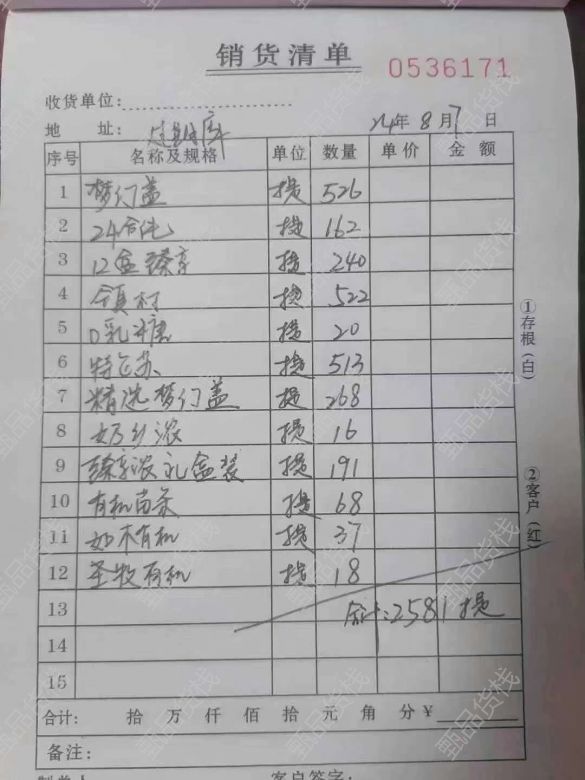 销货清单
0536171
收货单位:
地 址: 24年8月7日
序号 名称及规格 单位 数量 单价 金额
1 梦幻盖 提 526
2 24合纯 提 162
3 12盒臻享 提 240
4 领村 提 522
5 0乳糖 提 20
6 特仑苏 提 513
7 精选梦幻盖 提 268
8 奶乡浓 提 16
9 臻享浓礼盒装 提 191
10 有机苗条 提 68
11 有机 提 37
12 圣牧有机 提 18
13 合计:2581提
14
15
合计: 拾 万 仟 佰 拾 元 角 分 ¥
备注:
制单人 客户签字:
①存根(白)
②客户(红)
甄品货栈